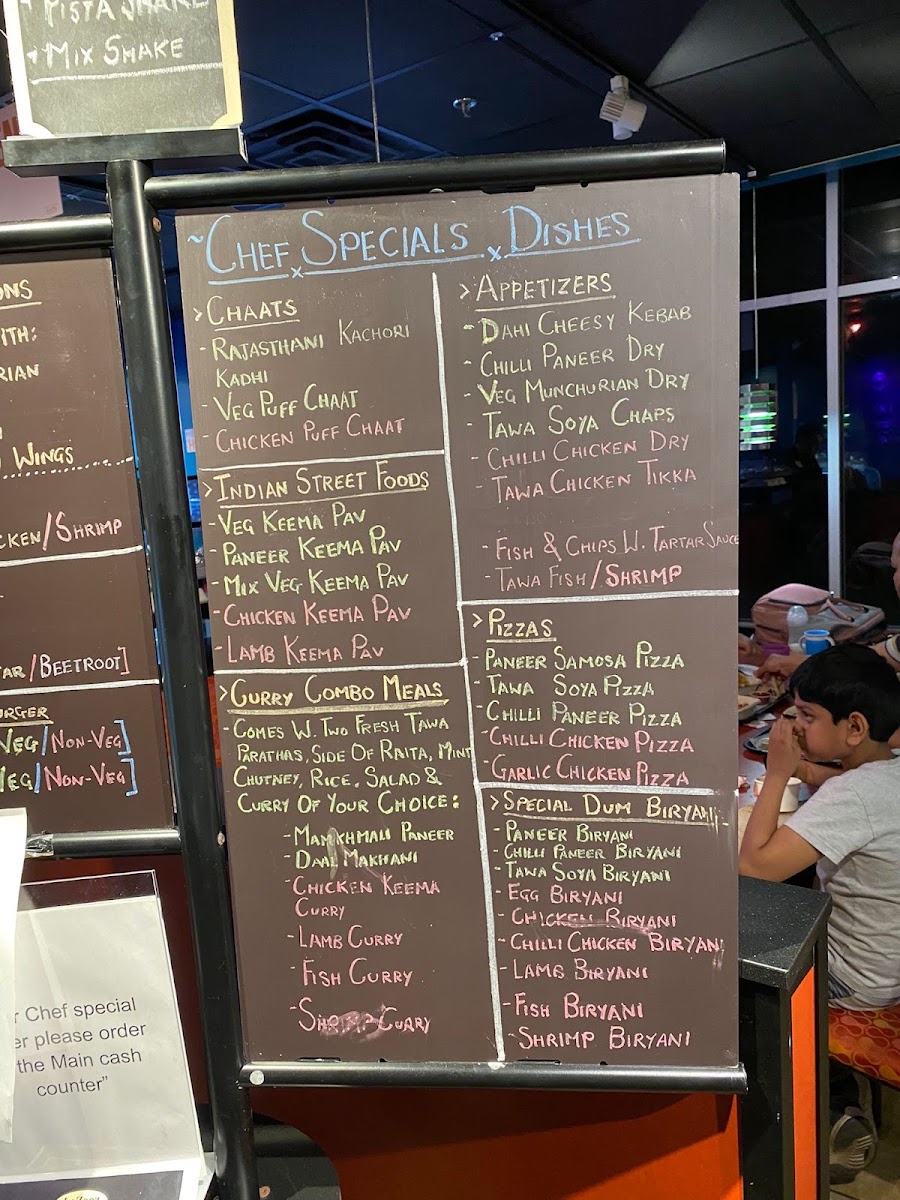 PISTA SHAKE
- MIX SHAKE
ONS
ITH:
RIAN
WINGS
CKEN/SHRIMP
TAR/BEETROOT]
URGER
VEG/NON-VEG]
VEG/NON-VEG]
r Chef special
er please order
the Main cash
counter"
~CHEF SPECIALS DISHES
>CHAATS
- RAJASTHANI KACHORI
KADHI
- VEG PUFF CHAAT
- CHICKEN PUFF CHAAT
>INDIAN STREET FOODS
- VEG KEEMA PAV
- PANEER KEEMA PAV
- MIX VEG KEEMA PAV
- CHICKEN KEEMA PAV
- LAMB KEEMA PAV
>CURRY COMBO MEALS
- COMES W. TWO FRESH TAWA
PARATHAS, SIDE OF RAITA, MINT
CHUTNEY, RICE, SALAD &
CURRY OF YOUR CHOICE:
- MAKHMALI PANEER
- DAAL MAKHANI
- CHICKEN KEEMA
CURRY
- LAMB CURRY
- FISH CURRY
- SHRIMP CURRY
>APPETIZERS
- DAHI CHEESY KEBAB
- CHILLI PANEER DRY
- VEG MUNCHURIAN DRY
- TAWA SOYA CHAPS
- CHILLI CHICKEN DRY
- TAWA CHICKEN TIKKA
- FISH & CHIPS W. TARTAR SAUCE
- TAWA FISH/SHRIMP
>PIZZAS
- PANEER SAMOSA PIZZA
- TAWA SOYA PIZZA
- CHILLI PANEER PIZZA
- CHILLI CHICKEN PIZZA
- GARLIC CHICKEN PIZZA
>SPECIAL DUM BIRYANI
- PANEER BIRYANI
- CHILLI PANEER BIRYANI
- TAWA SOYA BIRYANI
- EGG BIRYANI
- CHICKEN BIRYANI
- CHILLI CHICKEN BIRYANI
- LAMB BIRYANI
- FISH BIRYANI
- SHRIMP BIRYANI